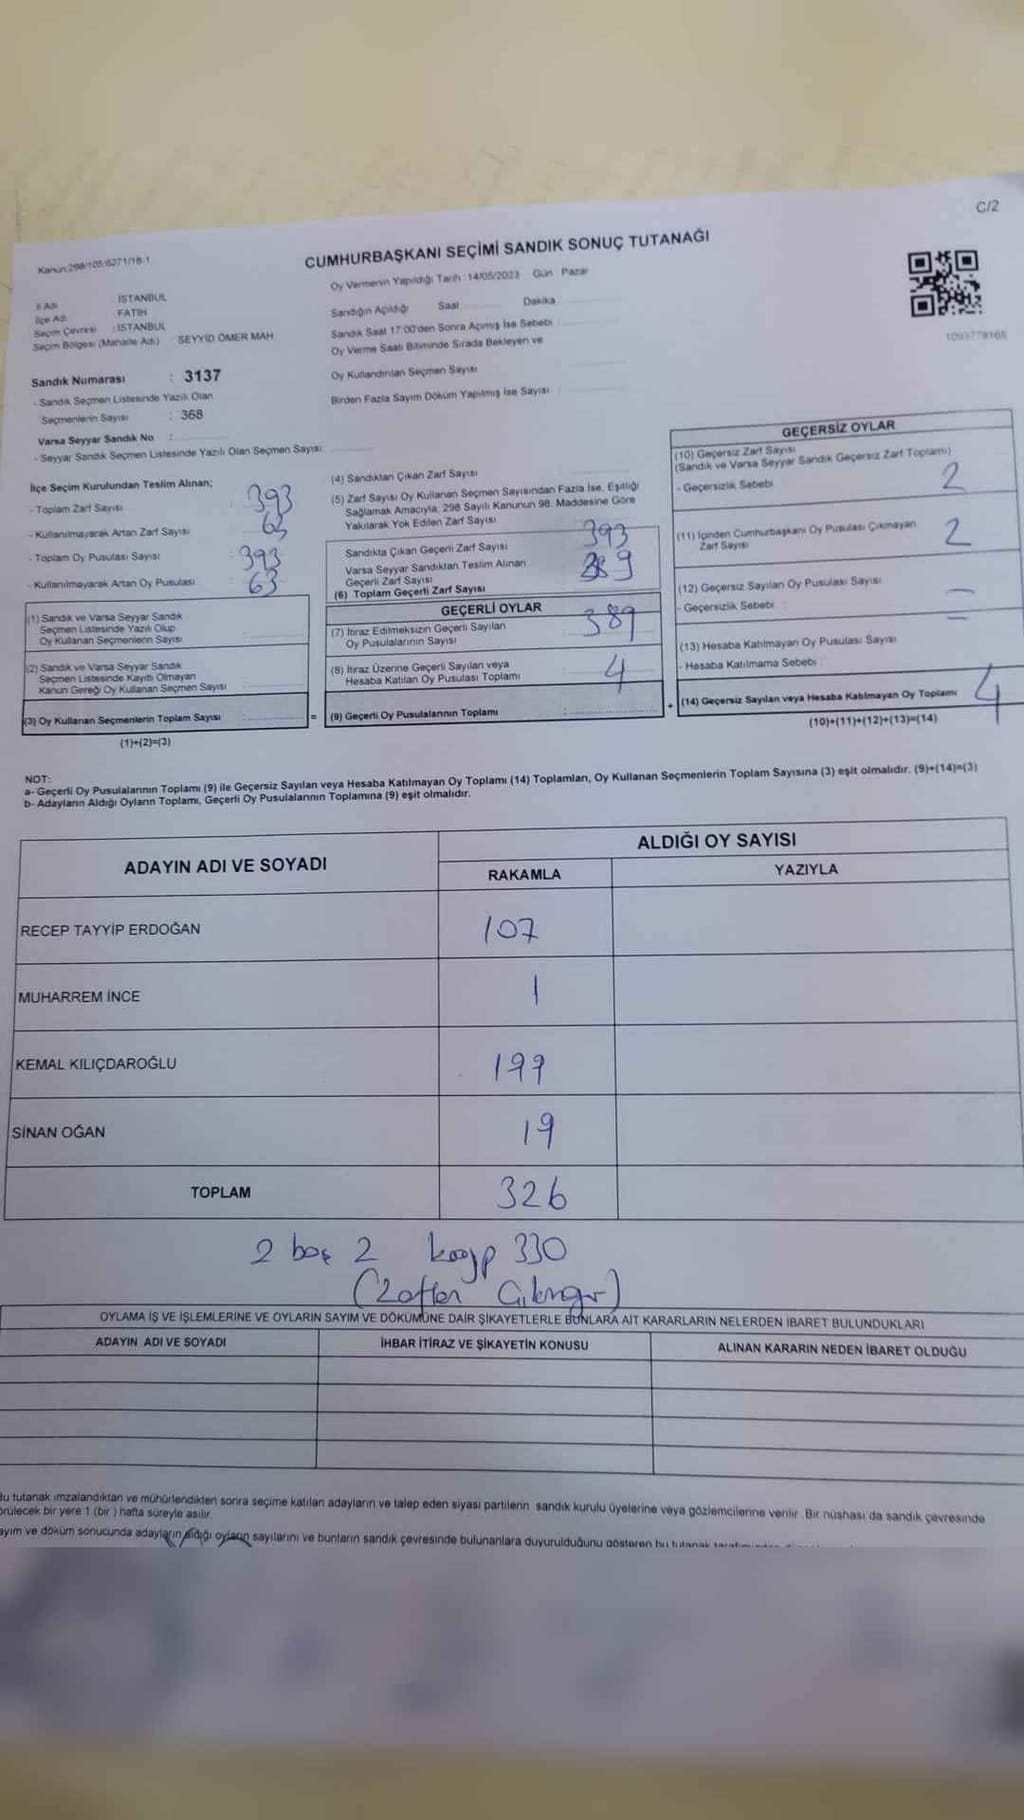 C/2
Kanun:298/105/6271/18-1
CUMHURBAŞKANI SEÇİMİ SANDIK SONUÇ TUTANAĞI
Oy Vermenin Yapıldığı Tarih : 14/05/2023 Gün Pazar
İl Adı : İSTANBUL
İlçe Adı : FATİH
Seçim Çevresi : İSTANBUL
Seçim Bölgesi (Mahalle Adı) SEYYİD ÖMER MAH
Sandık Numarası : 3137
- Sandık Seçmen Listesinde Yazılı Olan
Seçmenlerin Sayısı : 368
Varsa Seyyar Sandık No :
- Seyyar Sandık Seçmen Listesinde Yazılı Olan Seçmen Sayısı:
Sandığın Açıldığı Saat Dakika
Sandık Saat 17:00'den Sonra Açımış İse Sebebi
Oy Verme Saati Bitiminde Sırada Bekleyen ve
Oy Kullandırılan Seçmen Sayısı
Birden Fazla Sayım Döküm Yapılmış İse Sayısı
1093778168
İlçe Seçim Kurulundan Teslim Alınan;
- Toplam Zarf Sayısı : 393
- Kullanılmayarak Artan Zarf Sayısı 63
- Toplam Oy Pusulası Sayısı : 393
- Kullanılmayarak Artan Oy Pusulası : 63
(1) Sandık ve Varsa Seyyar Sandık
Seçmen Listesinde Yazılı Olup
Oy Kullanan Seçmenlerin Sayısı
(2) Sandık ve Varsa Seyyar Sandık
Seçmen Listesinde Kayıtlı Olmayan
Kanun Gereği Oy Kullanan Seçmen Sayısı
(3) Oy Kullanan Seçmenlerin Toplam Sayısı :
(1)+(2)=(3)
=
(4) Sandıktan Çıkan Zarf Sayısı
(5) Zarf Sayısı Oy Kullanan Seçmen Sayısından Fazla İse, Eşitliği
Sağlamak Amacıyla, 298 Sayılı Kanunun 98. Maddesine Göre
Yakılarak Yok Edilen Zarf Sayısı
Sandıkta Çıkan Geçerli Zarf Sayısı 393
Varsa Seyyar Sandıktan Teslim Alınan
Geçerli Zarf Sayısı 389
(6) Toplam Geçerli Zarf Sayısı
GEÇERLİ OYLAR
(7) İtiraz Edilmeksizin Geçerli Sayılan
Oy Pusulalarının Sayısı 389
(8) İtiraz Üzerine Geçerli Sayılan veya
Hesaba Katılan Oy Pusulası Toplamı 4
(9) Geçerli Oy Pusulalarının Toplamı :
+
GEÇERSİZ OYLAR
(10) Geçersiz Zarf Sayısı
(Sandık ve Varsa Seyyar Sandık Geçersiz Zarf Toplamı)
- Geçersizlik Sebebi 2
(11) İçinden Cumhurbaşkanı Oy Pusulası Çıkmayan
Zarf Sayısı 2
(12) Geçersiz Sayılan Oy Pusulası Sayısı
- Geçersizlik Sebebi : –
(13) Hesaba Katılmayan Oy Pusulası Sayısı –
- Hesaba Katılmama Sebebi :
(14) Geçersiz Sayılan veya Hesaba Katılmayan Oy Toplamı 4
(10)+(11)+(12)+(13)=(14)
NOT:
a- Geçerli Oy Pusulalarının Toplamı (9) ile Geçersiz Sayılan veya Hesaba Katılmayan Oy Toplamı (14) Toplamları, Oy Kullanan Seçmenlerin Toplam Sayısına (3) eşit olmalıdır. (9)+(14)=(3)
b- Adayların Aldığı Oyların Toplamı, Geçerli Oy Pusulalarının Toplamına (9) eşit olmalıdır.
ADAYIN ADI VE SOYADI ALDIĞI OY SAYISI
RAKAMLA YAZIYLA
RECEP TAYYİP ERDOĞAN 107
MUHARREM İNCE 1
KEMAL KILIÇDAROĞLU 199
SİNAN OĞAN 19
TOPLAM 326
2 boş 2 kayıp 330
(Zaften
OYLAMA İŞ VE İŞLEMLERİNE VE OYLARIN SAYIM VE DÖKÜMÜNE DAİR ŞİKAYETLERLE BUNLARA AİT KARARLARIN NELERDEN İBARET BULUNDUKLARI
ADAYIN ADI VE SOYADI İHBAR İTİRAZ VE ŞİKAYETİN KONUSU ALINAN KARARIN NEDEN İBARET OLDUĞU
Bu tutanak imzalandıktan ve mühürlendikten sonra seçime katılan adayların ve talep eden siyasi partilerin sandık kurulu üyelerine veya gözlemcilerine verilir. Bir nüshası da sandık çevresinde
örülecek bir yere 1 (bir ) hafta süreyle asılır.
ayım ve döküm sonucunda adayların aldığı oyların sayılarını ve bunların sandık çevresinde bulunanlara duyurulduğunu gösteren bu tutanak